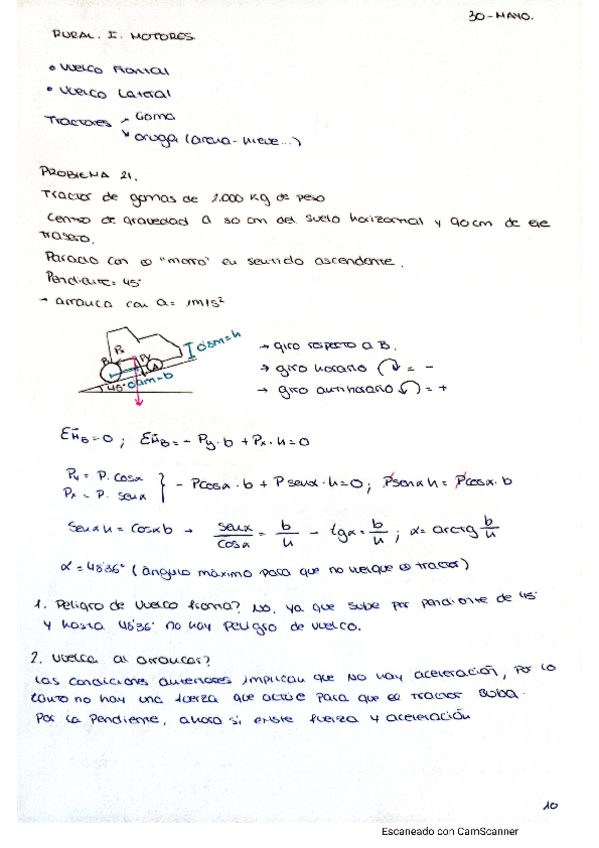 30-MAYO.
RURAL. I. MOTORES
• Vuelco Frontal
• Vuelco Lateral
Tractores → Goma
↘ oruga (arena-nieve...)
PROBLEMA 21.
Tractor de gomas de 1.000 Kg de peso
Centro de gravedad a 80 cm del suelo horizontal y 90 cm de eje
trasero.
Parado con el "morro" en sentido ascendente.
Pendiente = 45°
→ arranca con a = 1m/s²
B Px Py A 0'8m=h
45° 0'9m=b
→ giro respecto a B.
→ giro horario ↷ = -
→ giro antihorario ↶ = +
ΣM_B = 0 ; ΣM_B = - Py · b + Px · h = 0
Py = P · cosα
Px = P · senα } - Pcosα · b + P senα · h = 0 ; Psenα h = Pcosα · b
Senα h = Cosα b → senα/cosα = b/h - tgα = b/h ; α = arctg b/h
α = 48'36° (ángulo máximo para que no vuelque el tractor)
1. Peligro de vuelco frontal? No, ya que sube por pendiente de 45°
y hasta 48'36° no hay peligro de vuelco.
2. Vuelca al arrancar?
Las condiciones anteriores implican que NO hay aceleración, Por lo
tanto no hay una fuerza que actúe para que el tractor suba.
Por la pendiente, ahora si existe fuerza y aceleración
10
Escaneado con CamScanner